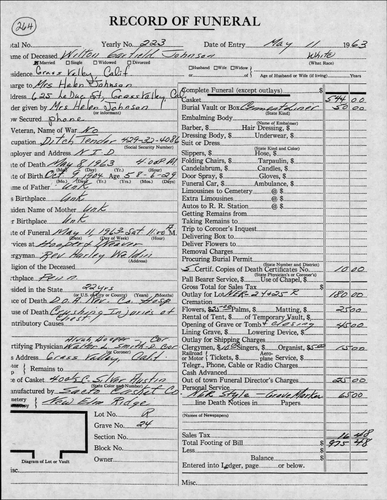 264
RECORD OF FUNERAL
Total No. Yearly No. 223 Date of Entry May 11 1963
Name of Deceased Wilton Garfield Johnson White
Married Single Widowed Divorced (What Race)
Residence Grass Valley, Calif Husband Wife Widow Age of Husband or Wife (if living) Years
Charge to Mrs Helen Johnson Complete Funeral (except outlays) $
Address Grass Valley Cal Casket 544 00
Order given by Mrs Helen Johnson Burial Vault or Box Cement Liner 50 00
(State Kind)
or Secured phone Embalming Body
Barber, $ Hair Dressing, $
Veteran, Name of War No Dressing Body, $ Underwear, $
Occupation Ditch Tender 429-32-4086 Suit or Dress
(Social Security Number) (State Kind and Color)
Employer and Address N.I.D Slippers, $ Hose, $
Date of Death May 8 1963 4:00 AM Folding Chairs, $ Tarpaulin, $
Candelabrum, $ Candles, $
Date of Birth Oct 9 1904 Age 58-6-29 Door Spray, $ Gloves, $
Name of Father Unk Funeral Car, $ Ambulance, $
Birthplace Unk Limousines to Cemetery @ $
Extra Limousines @ $
Maiden Name of Mother Unk Autos to R. R. Station @ $
Birthplace Unk Getting Remains from
Taking Remains to
Date of Funeral May 11, 1963 Sat 11:00 A Trip to Coroner's Inquest
Services at Hooper & Weaver Delivering Box to
Deliver Flowers to
Clergyman Rev Harley Waldin Removal Charges
Religion of the Deceased Procuring Burial Permit
(State Number and District)
Birthplace 5 Certif. Copies of Death Certificates No. 10 00
(State Physician's or Coroner's)
Resided in the State 22 yrs Pall Bearer Service, $ Use of Chapel, $
(State Fully)
Gross Total for Sales Tax $
Place of Death D.O.A. Hosp Outlay for Lot No 24025 R 180 00
Cause of Death Crushing Injuries of Chest Flowers, $25.00 Palms, $ Matting, $ 25 00
Rental of Tent, $ of Temporary Vault, $
Contributory Causes Opening of Grave or Tomb & closing 45 00
Lining Grave, $ Lowering Device, $
Outlay for Shipping Charges
Certifying Physician Clergymen, $10.00 Singers, $ Organist, $5.00 15 00
Address Grass Valley Calif Railroad or Aero-plane Tickets, $ Telegram Service, $
Telegr., Phone, Cable or Radio Charges
Cash Advanced
of Casket 400 C. Silver Austin Out of town Funeral Director's Charges
(State Color and Number)
Manufactured by Sacto Casket Co. Personal Service $
Cemetery New Elm Ridge N&R Style - Grave Marker 65 00
line Death Notices in Papers
Lot No. R (Names of Newspapers)
Grave No. 24
Section No. Sales Tax 16 48
Total Footing of Bill $ 975 48
Block No. Less
Owner Balance $
Diagram of Lot or Vault Entered into Ledger, page or below.
Misc. Misc.